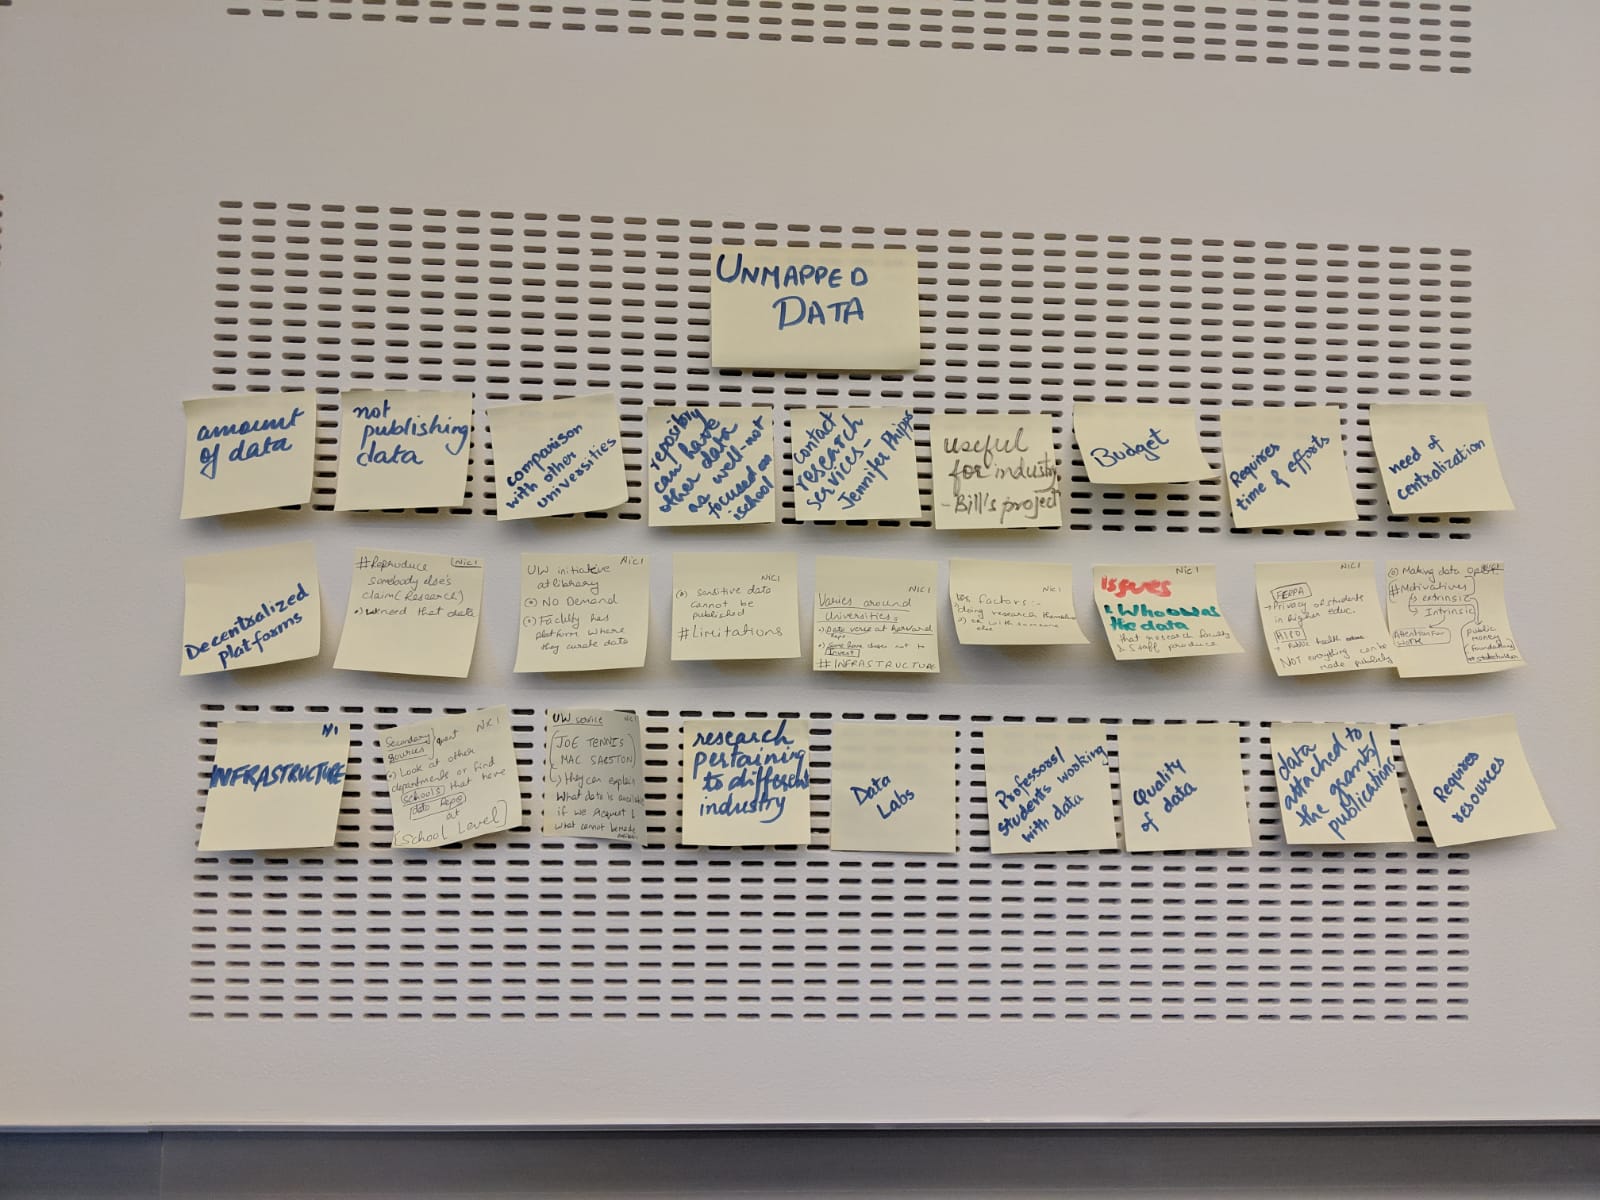 UNMAPPED
DATA
amount
of data
not
publishing
data
comparison
with other
universities
repository
can have
other data
as well-not
focused on
ischool
contact
research
services-
Jennifer Phipps
useful
for industry
-Bill's project
Budget
Requires
time & efforts
need of
centralization
Decentralized
platforms
#Reproduce
Nic1
somebody else's
claim (Research)
need that data
UW initiative
Nic1
at library
NO Demand
Faculty has
platform where
they curate data
Nic1
Sensitive data
cannot be
published
#Limitations
Nic1
Varies around
universities
at harvard
Invest
#INFRASTRUCTURE
Nic1
factors:-
doing research themselves
or with someone
else
Nic1
Issues
1. Who owns
the data
that research faculty
& Staff produce
Nic1
FERPA
→ Privacy of students
in higher educ.
health
NOT everything can be
made publicly
Making data open
#Motivations
extrinsic
Intrinsic
Attention for
work
Public
money
(foundations)
N1
INFRASTRUCTURE
Nic1
Secondary
sources
Look at other
departments or find
schools that have
data repo
at
[School Level]
UW service
Nic1
JOE TENNIS
they can explain
what data is available
if we request &
what cannot be made
research
pertaining
to different
industry
Data
Labs
Professors/
students working
with data
Quality
of data
data
attached to
the grants/
publications
Requires
resources